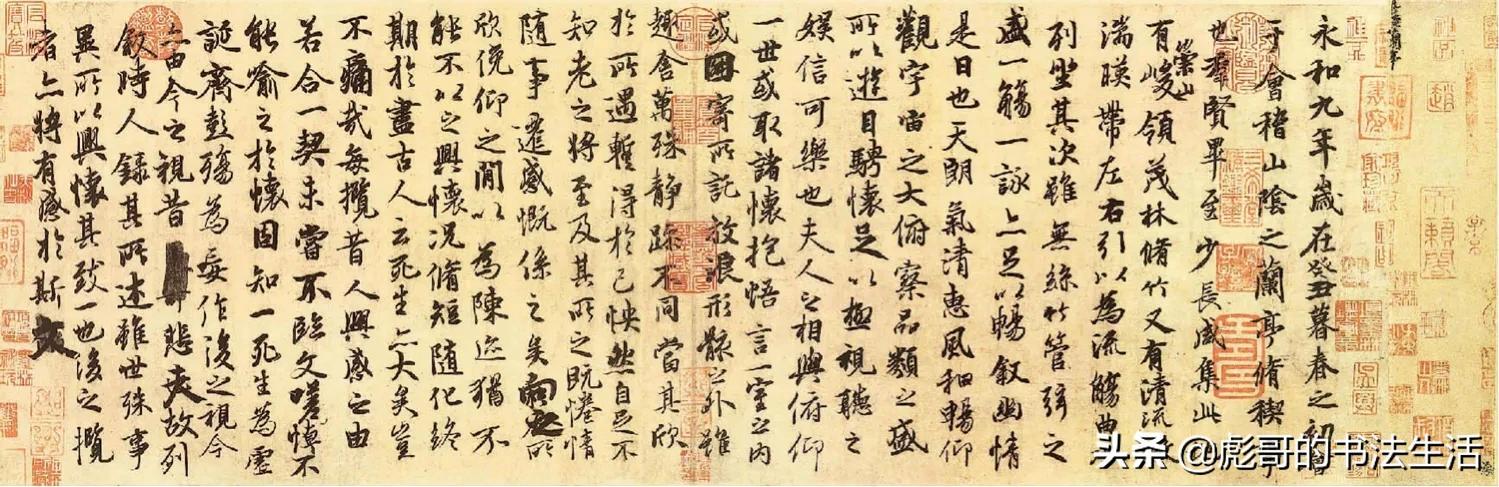 永和九年歲在癸丑暮春之初會
于會稽山陰之蘭亭脩稧事
也羣賢畢至少長咸集此地
有崇山峻領茂林脩竹又有清流激
湍暎帶左右引以為流觴曲水
列坐其次雖無絲竹管弦之
盛一觴一詠亦足以暢敘幽情
是日也天朗氣清惠風和暢仰
觀宇宙之大俯察品類之盛
所以遊目騁懷足以極視聽之
娛信可樂也夫人之相與俯仰
一世或取諸懷抱悟言一室之內
或因寄所託放浪形骸之外雖
趣舍萬殊靜躁不同當其欣
於所遇暫得於己怏然自足不
知老之將至及其所之既惓情
隨事遷感慨係之矣向之所
欣俛仰之閒以為陳迹猶不
能不以之興懷況脩短隨化終
期於盡古人云死生亦大矣豈
不痛哉每攬昔人興感之由
若合一契未嘗不臨文嗟悼不
能喻之於懷固知一死生為虛
誕齊彭殤為妄作後之視今
亦由今之視昔悲夫故列
敘時人錄其所述雖世殊事
異所以興懷其致一也後之攬
者亦將有感於斯文
头条 @彪哥的书法生活